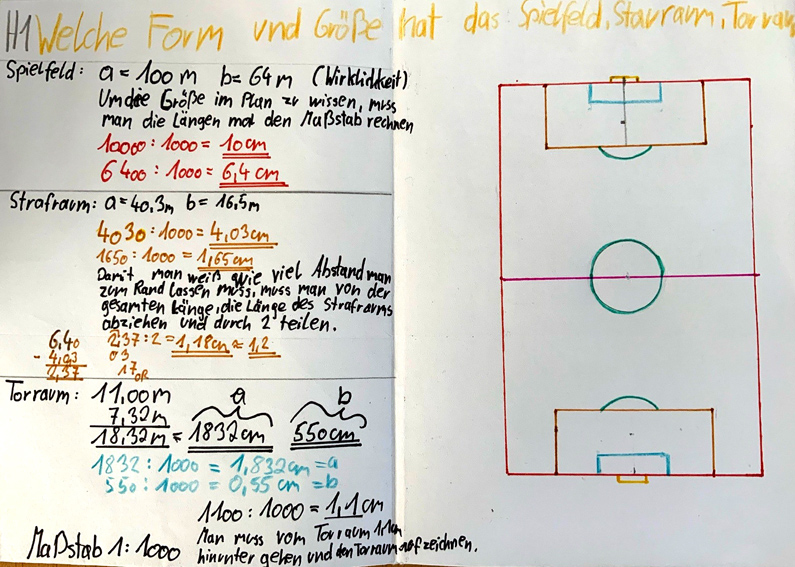 H1 Welche Form und Größe hat das Spielfeld, Stauraum, Torraum
Spielfeld: a = 100 m b = 64 m (Wirklichkeit)
Um die Größe im Plan zu wissen, muss
man die Längen mal den Maßstab rechnen
10000 : 1000 = 10 cm
6400 : 1000 = 6,4 cm
Strafraum: a = 40.3m b = 16,5m
4030 : 1000 = 4,03 cm
1650 : 1000 = 1,65 cm
Damit man weiß wie viel Abstand man
zum Rand lassen muss, muss man von der
gesamten Länge, die Länge des Strafraums
abziehen und durch 2 teilen.
6,40 2,37 : 2 = 1,18cm ≈ 1,2
- 4,03 03
2,37 17
0R
Torraum: 11,00 m a b
7,32 m
18,32 m = 1832 cm 550 cm
1832 : 1000 = 1,832 cm = a
550 : 1000 = 0,55 cm = b
1100 : 1000 = 1,1 cm
Man muss vom Torraum 1,1cm
hinunter gehen und den Torraum aufzeichnen.
Maßstab 1 : 1000